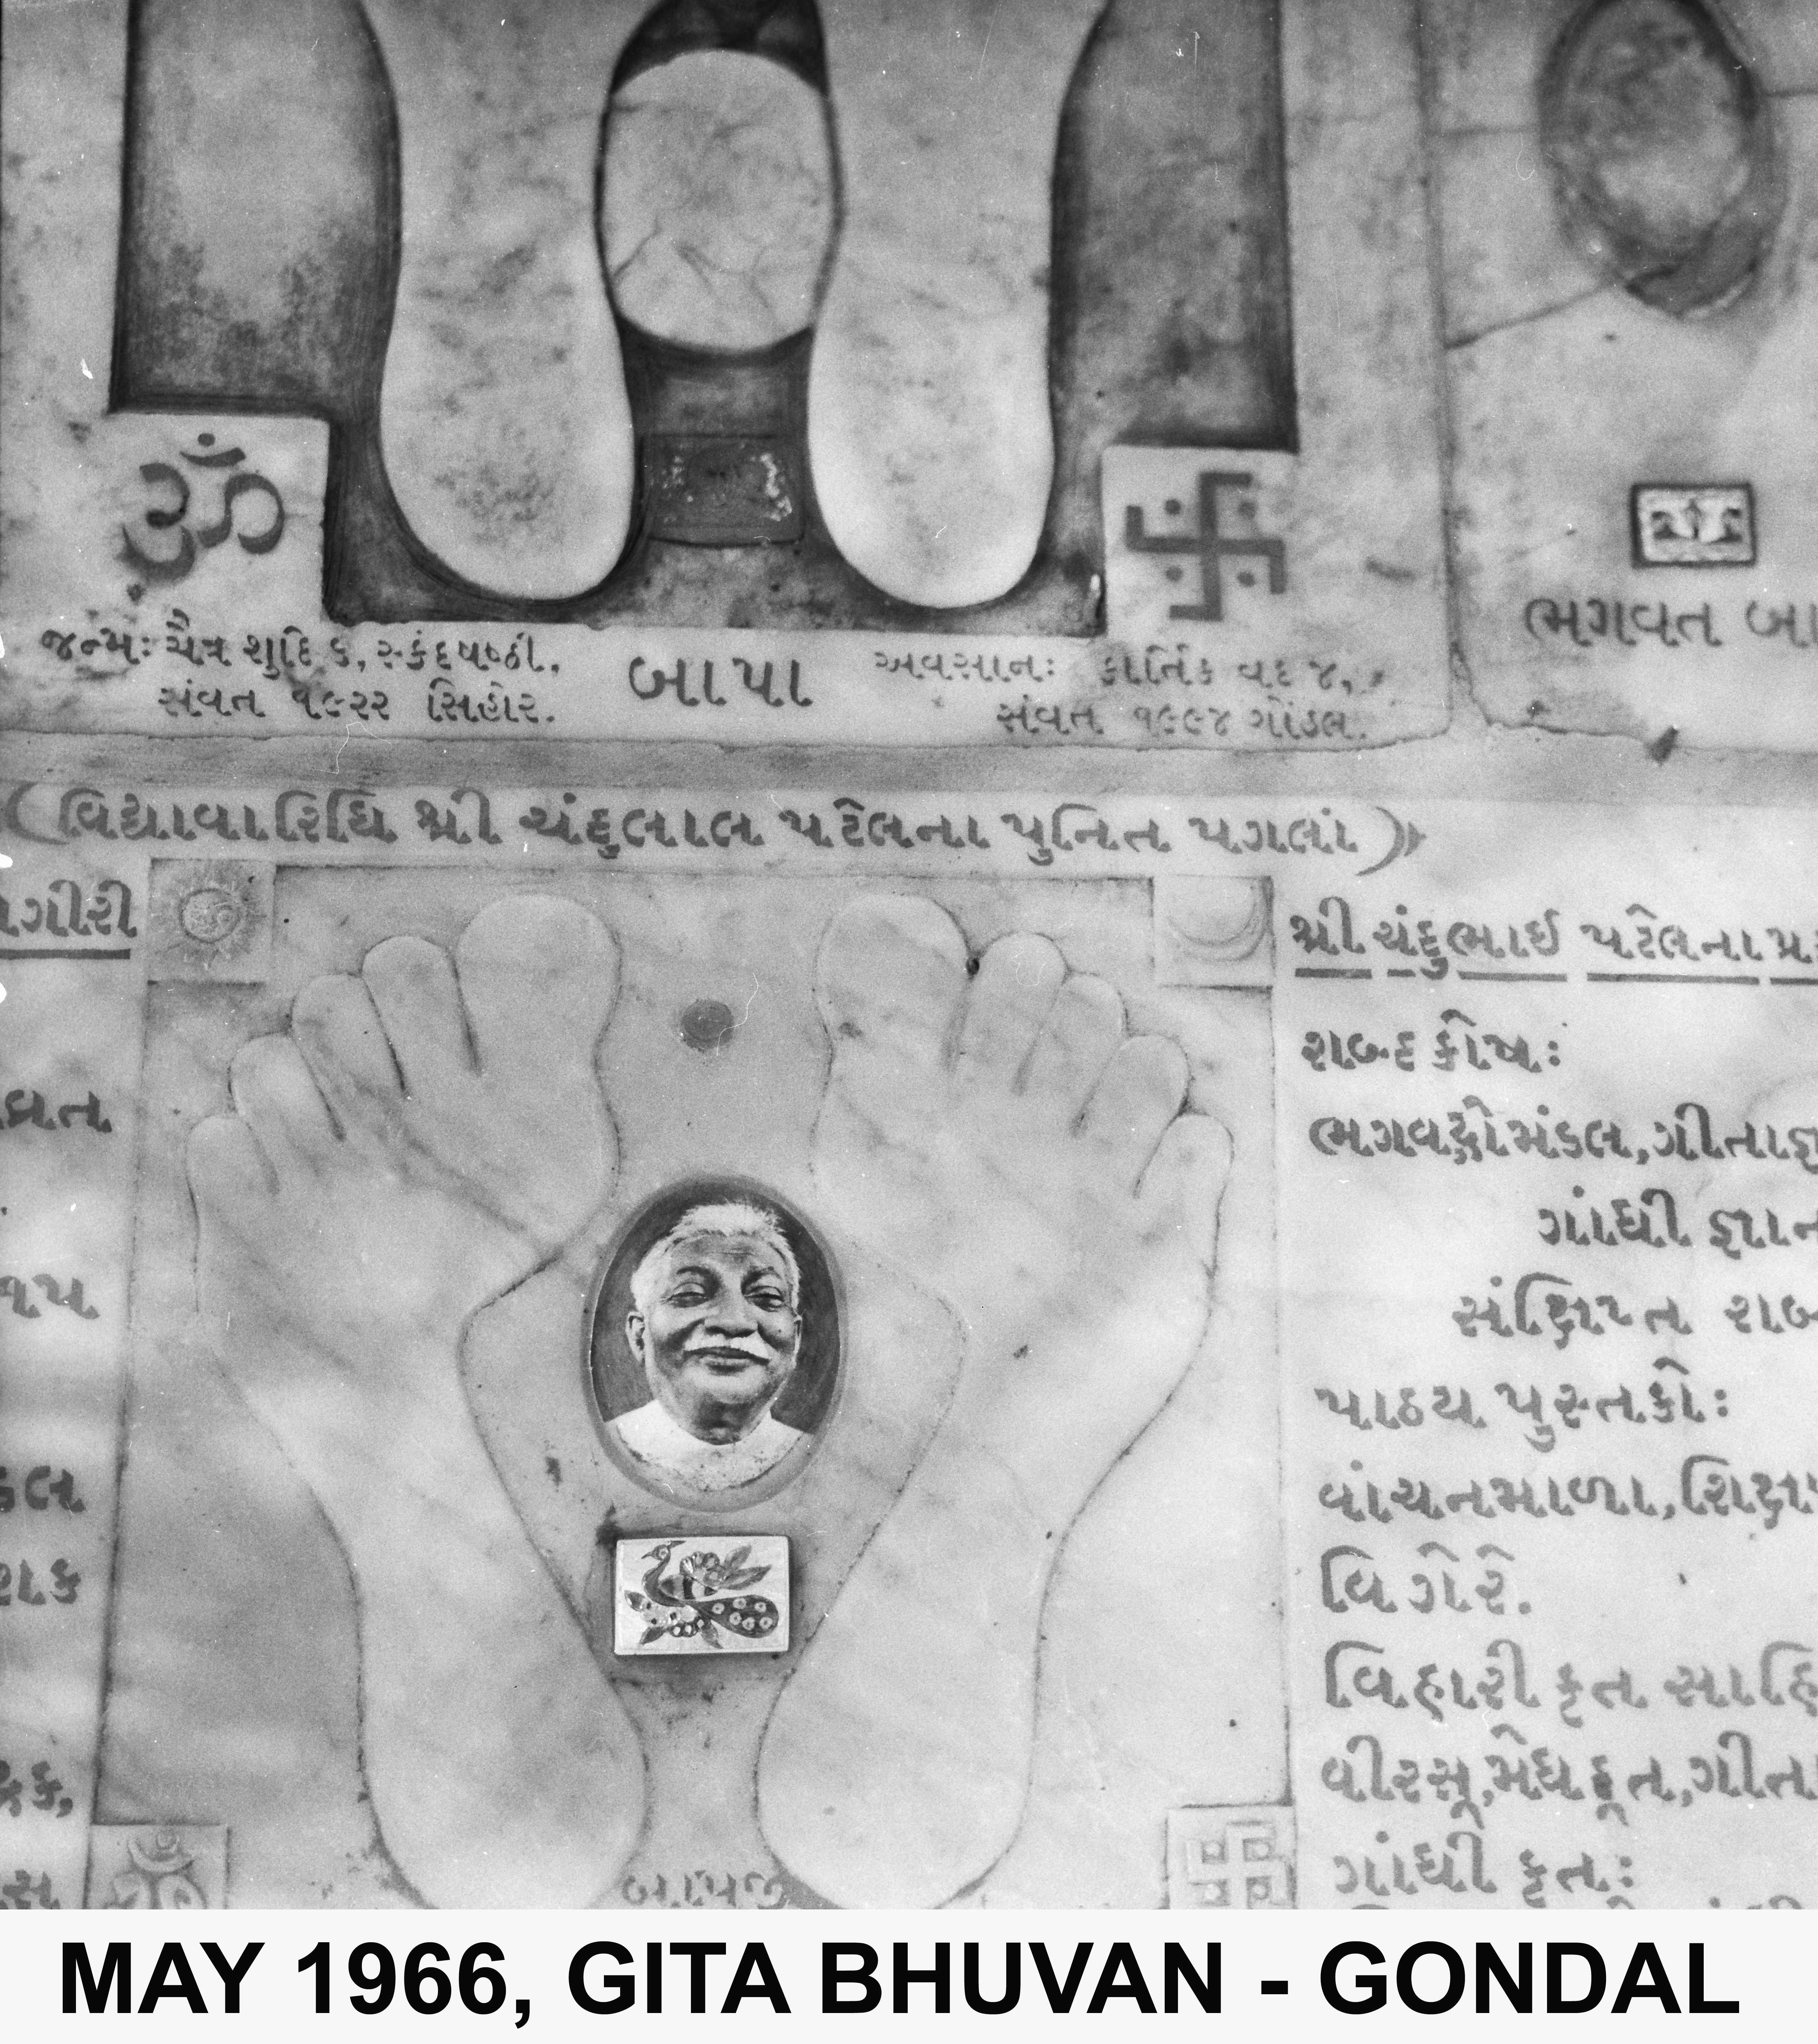 ॐ
જન્મઃ ચૈત્ર શુદિ ૬, સ્કંદષષ્ઠી,
સંવત ૧૯૨૨ સિહોર.
બાપા
અવસાનઃ કાર્તિક વદ ૪,
સંવત ૧૯૯૪ ગોંડલ.
ભગવત બા
(વિદ્યાવારિધિ શ્રી ચંદુલાલ પટેલના પુનિત પગલાં)
ગીરી
વ્રત
ડલ
બાપજી
શ્રી ચંદુભાઈ પટેલના પ્ર
શબ્દ કોષઃ
ભગવદ્ગોમંડલ, ગીતાજ્ઞ
ગાંધી જ્ઞાન
સંક્ષિપ્ત શબ
પાઠય પુસ્તકોઃ
વાંચનમાળા, શિક્ષા
વિગેરે.
વિહારી કૃત સાહિ
વીરસૂ, મેઘદૂત, ગીતા
ગાંધી કૃતઃ
MAY 1966, GITA BHUVAN - GONDAL